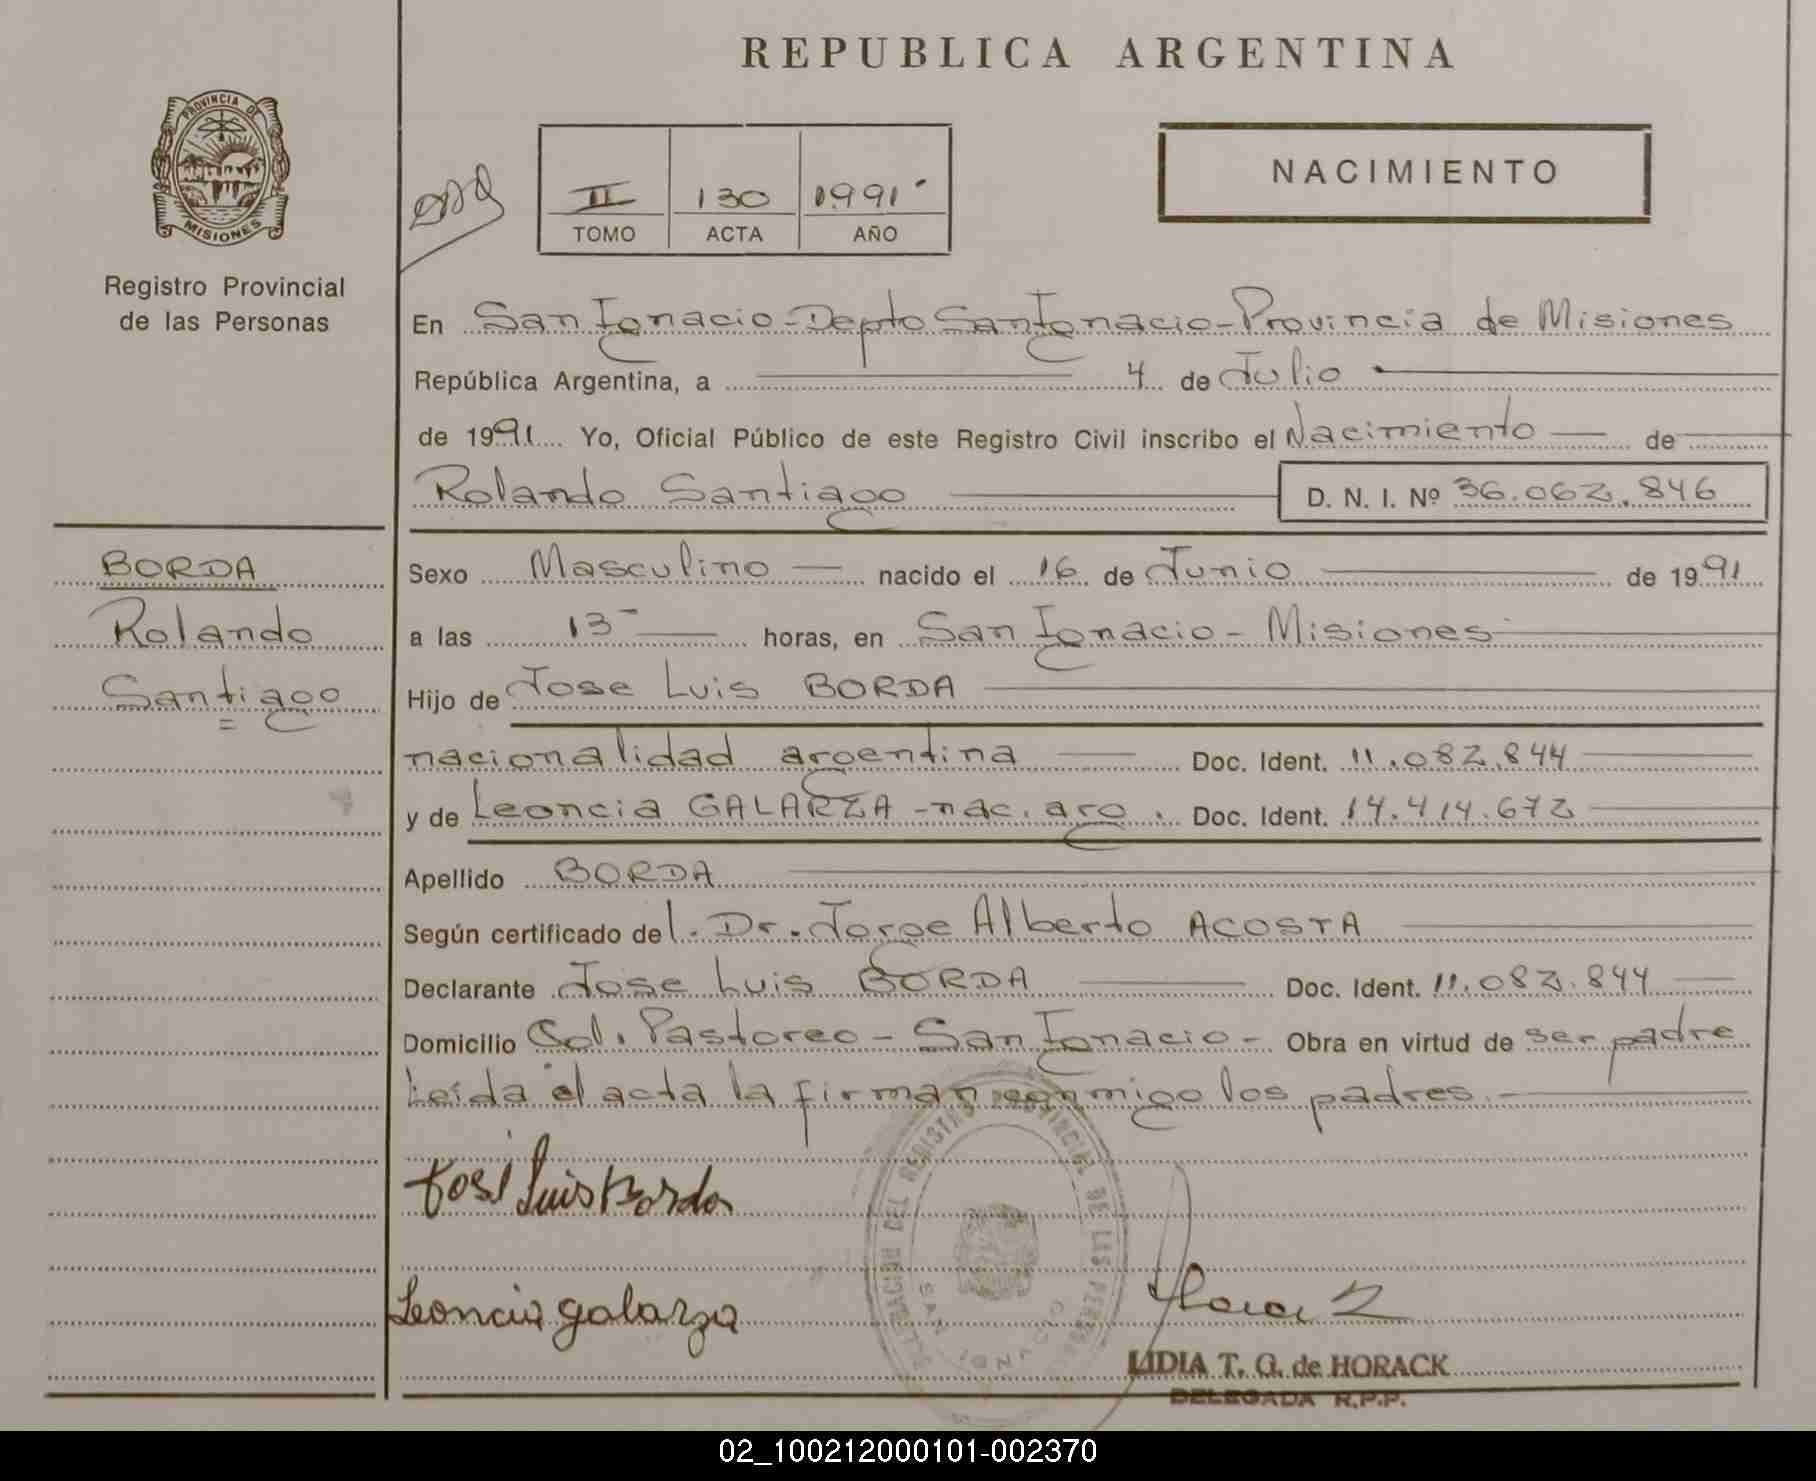 REPUBLICA ARGENTINA
PROVINCIA DE
MISIONES
Registro Provincial
de las Personas
II 130 1991
TOMO ACTA AÑO
NACIMIENTO
En San Ignacio - Depto San Ignacio - Provincia de Misiones
República Argentina, a 4 de Julio
de 1991 Yo, Oficial Público de este Registro Civil inscribo el Nacimiento de
Rolando Santiago D. N. I. Nº 36.062.846
BORDA
Rolando
Santiago
Sexo Masculino nacido el 16 de Junio de 1991
a las 13 horas, en San Ignacio - Misiones
Hijo de Jose Luis BORDA
nacionalidad argentina Doc. Ident. 11.082.844
y de Leoncia GALARZA - nac. arg. Doc. Ident. 14.414.672
Apellido BORDA
Según certificado del. Dr. Jorge Alberto ACOSTA
Declarante Jose Luis BORDA Doc. Ident. 11.082.844
Domicilio Col. Pastoreo - San Ignacio - Obra en virtud de ser padre
Leída el acta la firman conmigo los padres.
José Luis Borda
Leoncia galarza
LIDIA T. G. de HORACK
DELEGADA R.P.P.
02_100212000101-002370